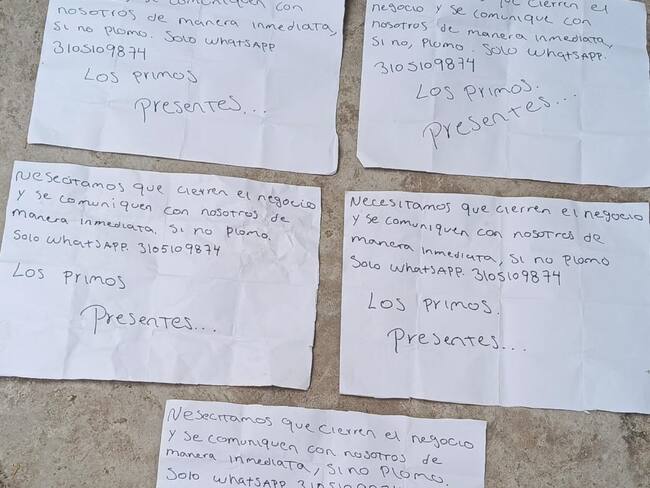 comuniquen con
nosotros de manera inmediata,
Si no plomo. Solo WhatsAPP
3105109874
Los primos
Presentes...
cierren el
negocio y se comunique con
nosotros de manera inmediata,
Si no, Plomo. Solo WhatsAPP.
3105109874
Los Primos.
Presentes...
Nesecitamos que cierren el negocio
y se comuniquen con nosotros de
manera inmediata. Si no plomo.
Solo WhatsAPP. 3105109874
Los primos
Presentes...
Necesitamos que cierren el negocio
y se comuniquen con nosotros de
manera inmediata, si no plomo
Solo WhatsAPP. 3105109874
Los Primos.
Presentes...
Nesecitamos que cierren el negocio
y se comuniquen con nosotros de
manera inmediata, si no plomo.
Solo WhatsAPP